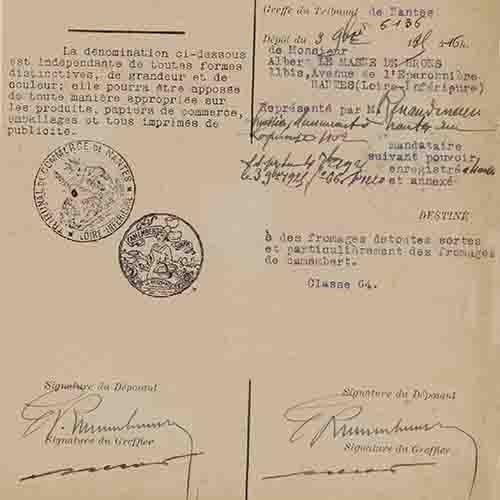 Greffe du Tribunal de Nantes
6136
Dépôt du 3
16h.
de Monsieur
Albert LE MASNE DE BRONS
11bis, Avenue de l'Eparonnière
NANTES(Loire-Inférieure)
Représenté par M.
mandataire
suivant pouvoir
enregistré à
et annexé
La dénomination ci-dessous
est indépendante de toutes formes
distinctives, de grandeur et de
couleur; elle pourra être apposée
de toute manière appropriée sur
les produits, papiers de commerce,
emballages et tous imprimés de
publicité.
TRIBUNAL DE COMMERCE DE NANTES
LOIRE-INFERIEURE
CAMEMBERT
DESTINÉ
à des fromages detoutes sortes
et particulièrement des fromages
de camembert.
Classe 64.
Signature du Déposant
Signature du Greffier
Signature du Déposant
Signature du Greffier